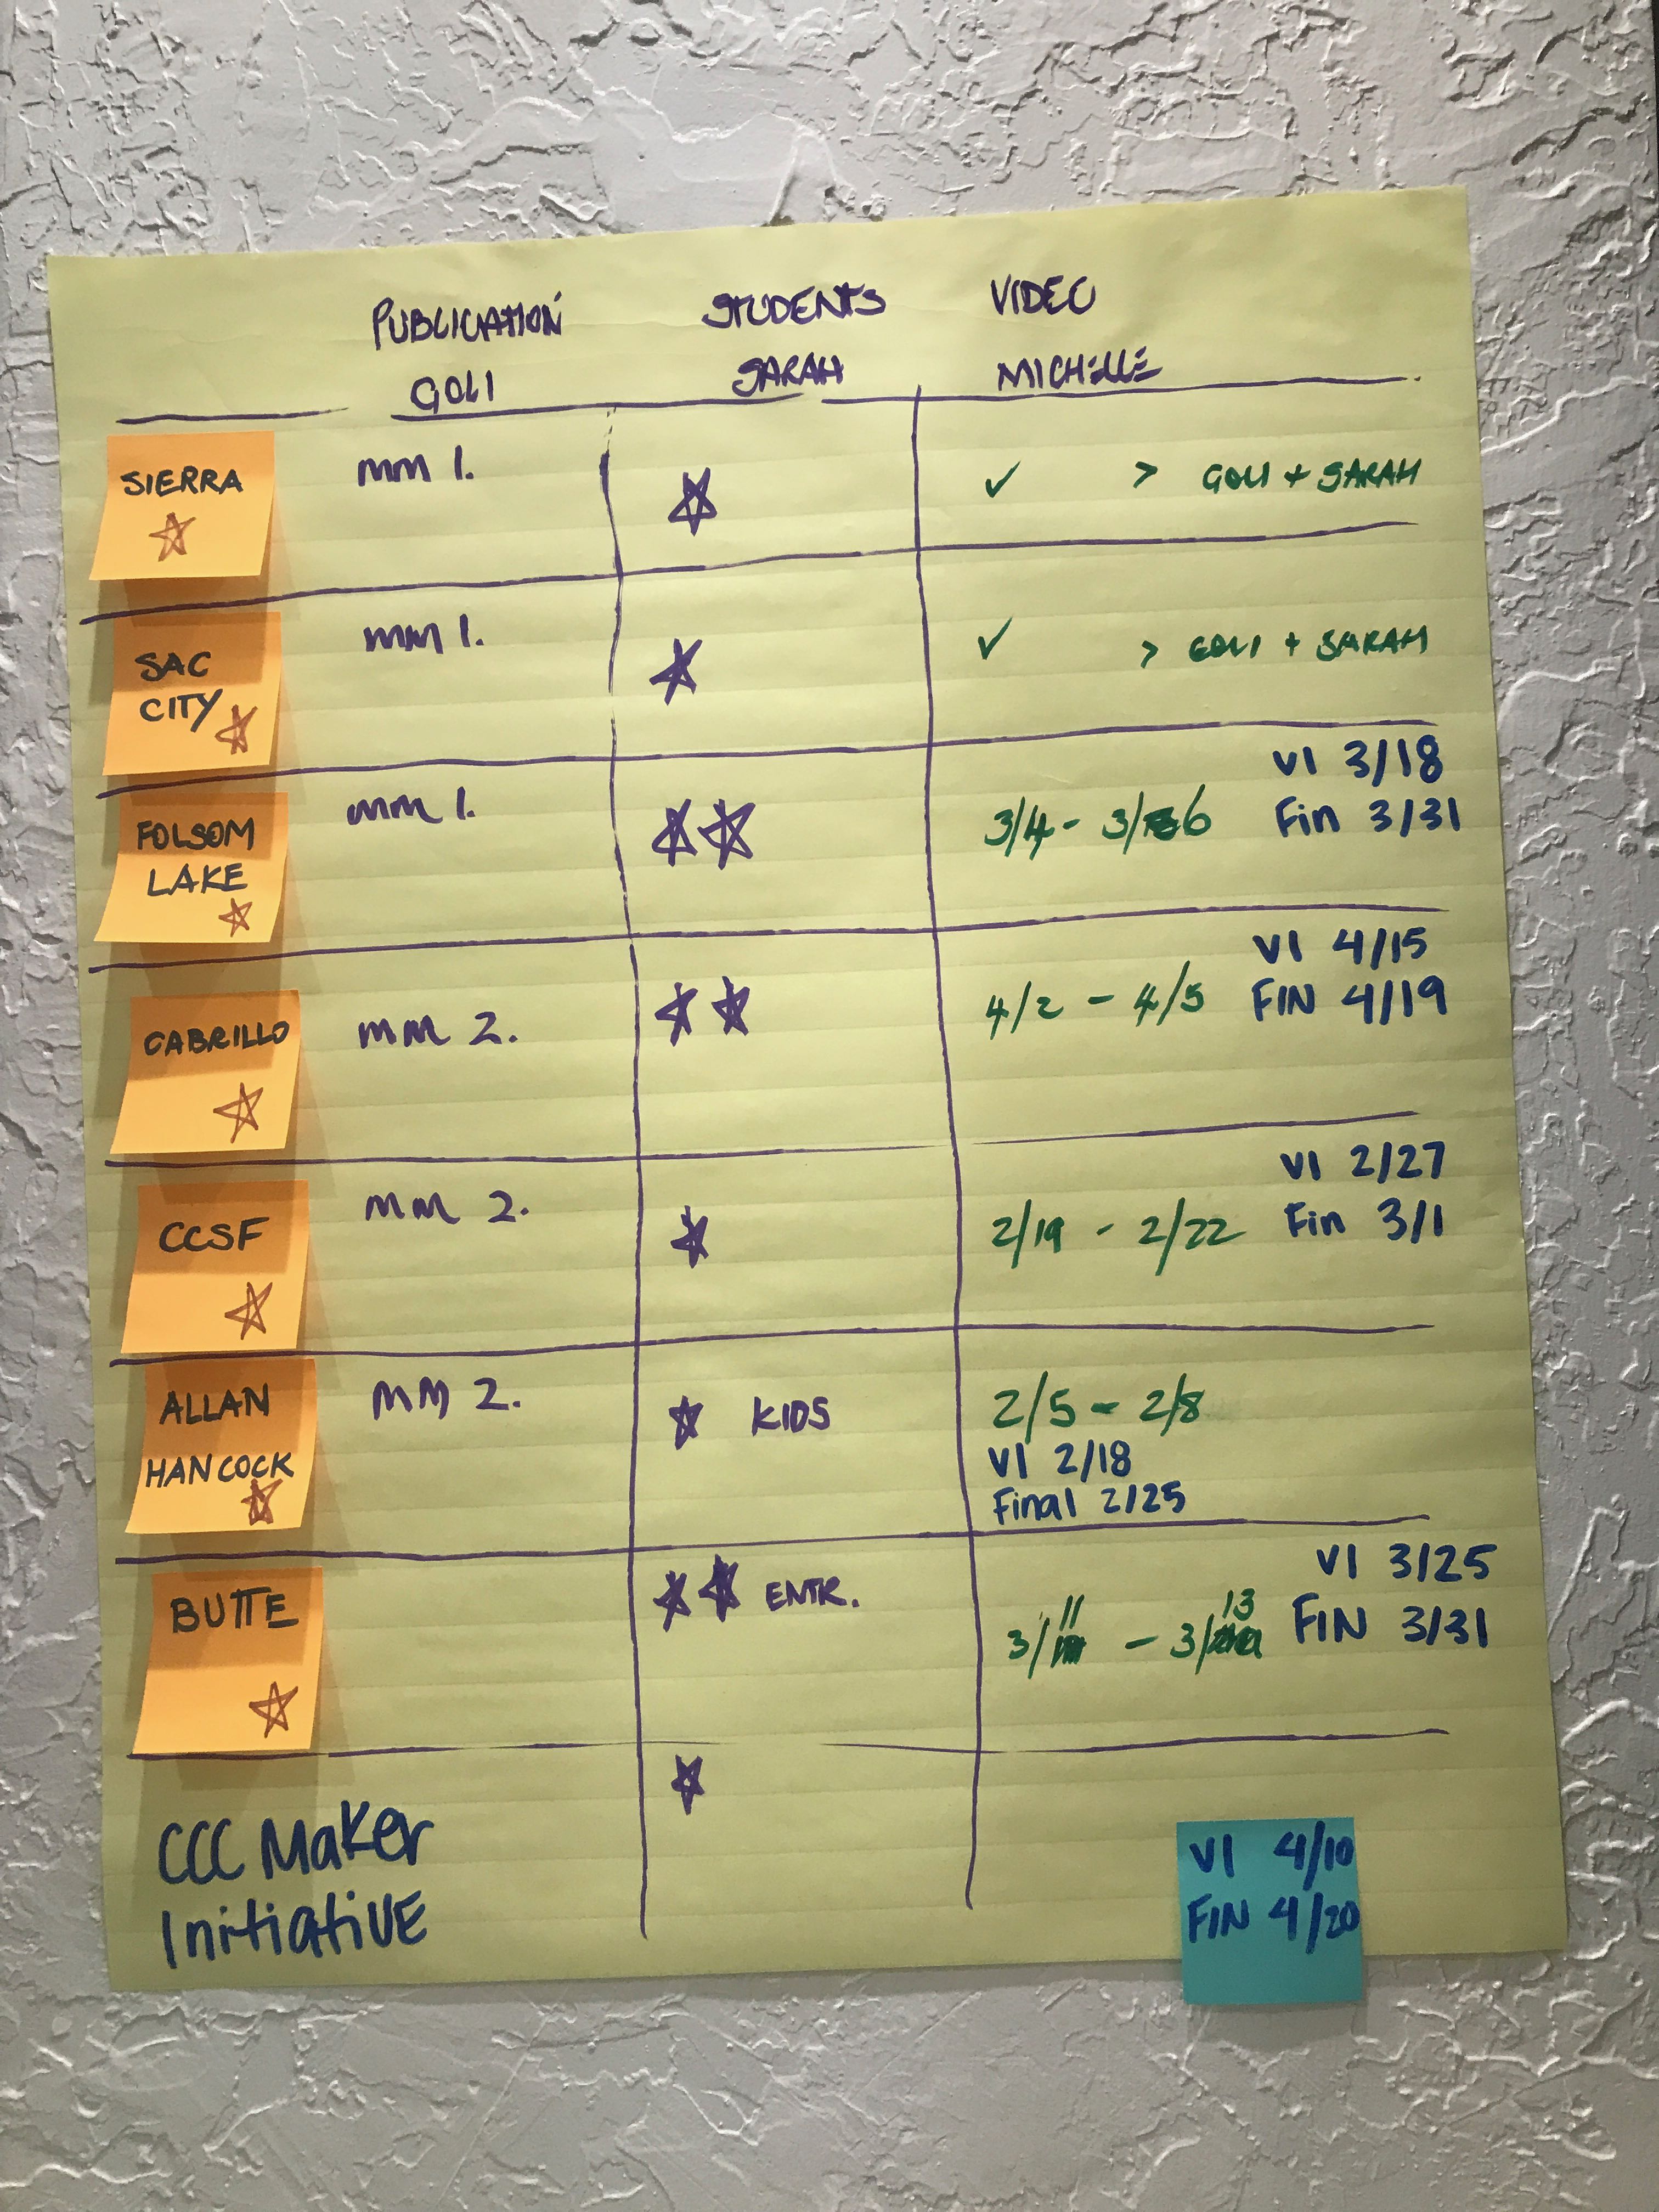 PUBLICATION STUDENTS VIDEO
GOLI SARAH MICHELLE
SIERRA mm 1. ✓ > GOLI + SARAH
SAC mm 1. ✓ > GOLI + SARAH
CITY
V1 3/18
FOLSOM mm 1. 3/4 - 3/6 Fin 3/31
LAKE
V1 4/15
CABRILLO mm 2. 4/2 - 4/5 FIN 4/19
V1 2/27
CCSF mm 2. 2/19 - 2/22 Fin 3/1
ALLAN mm 2. KIDS 2/5 - 2/8
HANCOCK V1 2/18
Final 2/25
V1 3/25
BUTTE ENTR. 3/11 - 3/13 FIN 3/31
CCC Maker V1 4/10
Initiative FIN 4/20